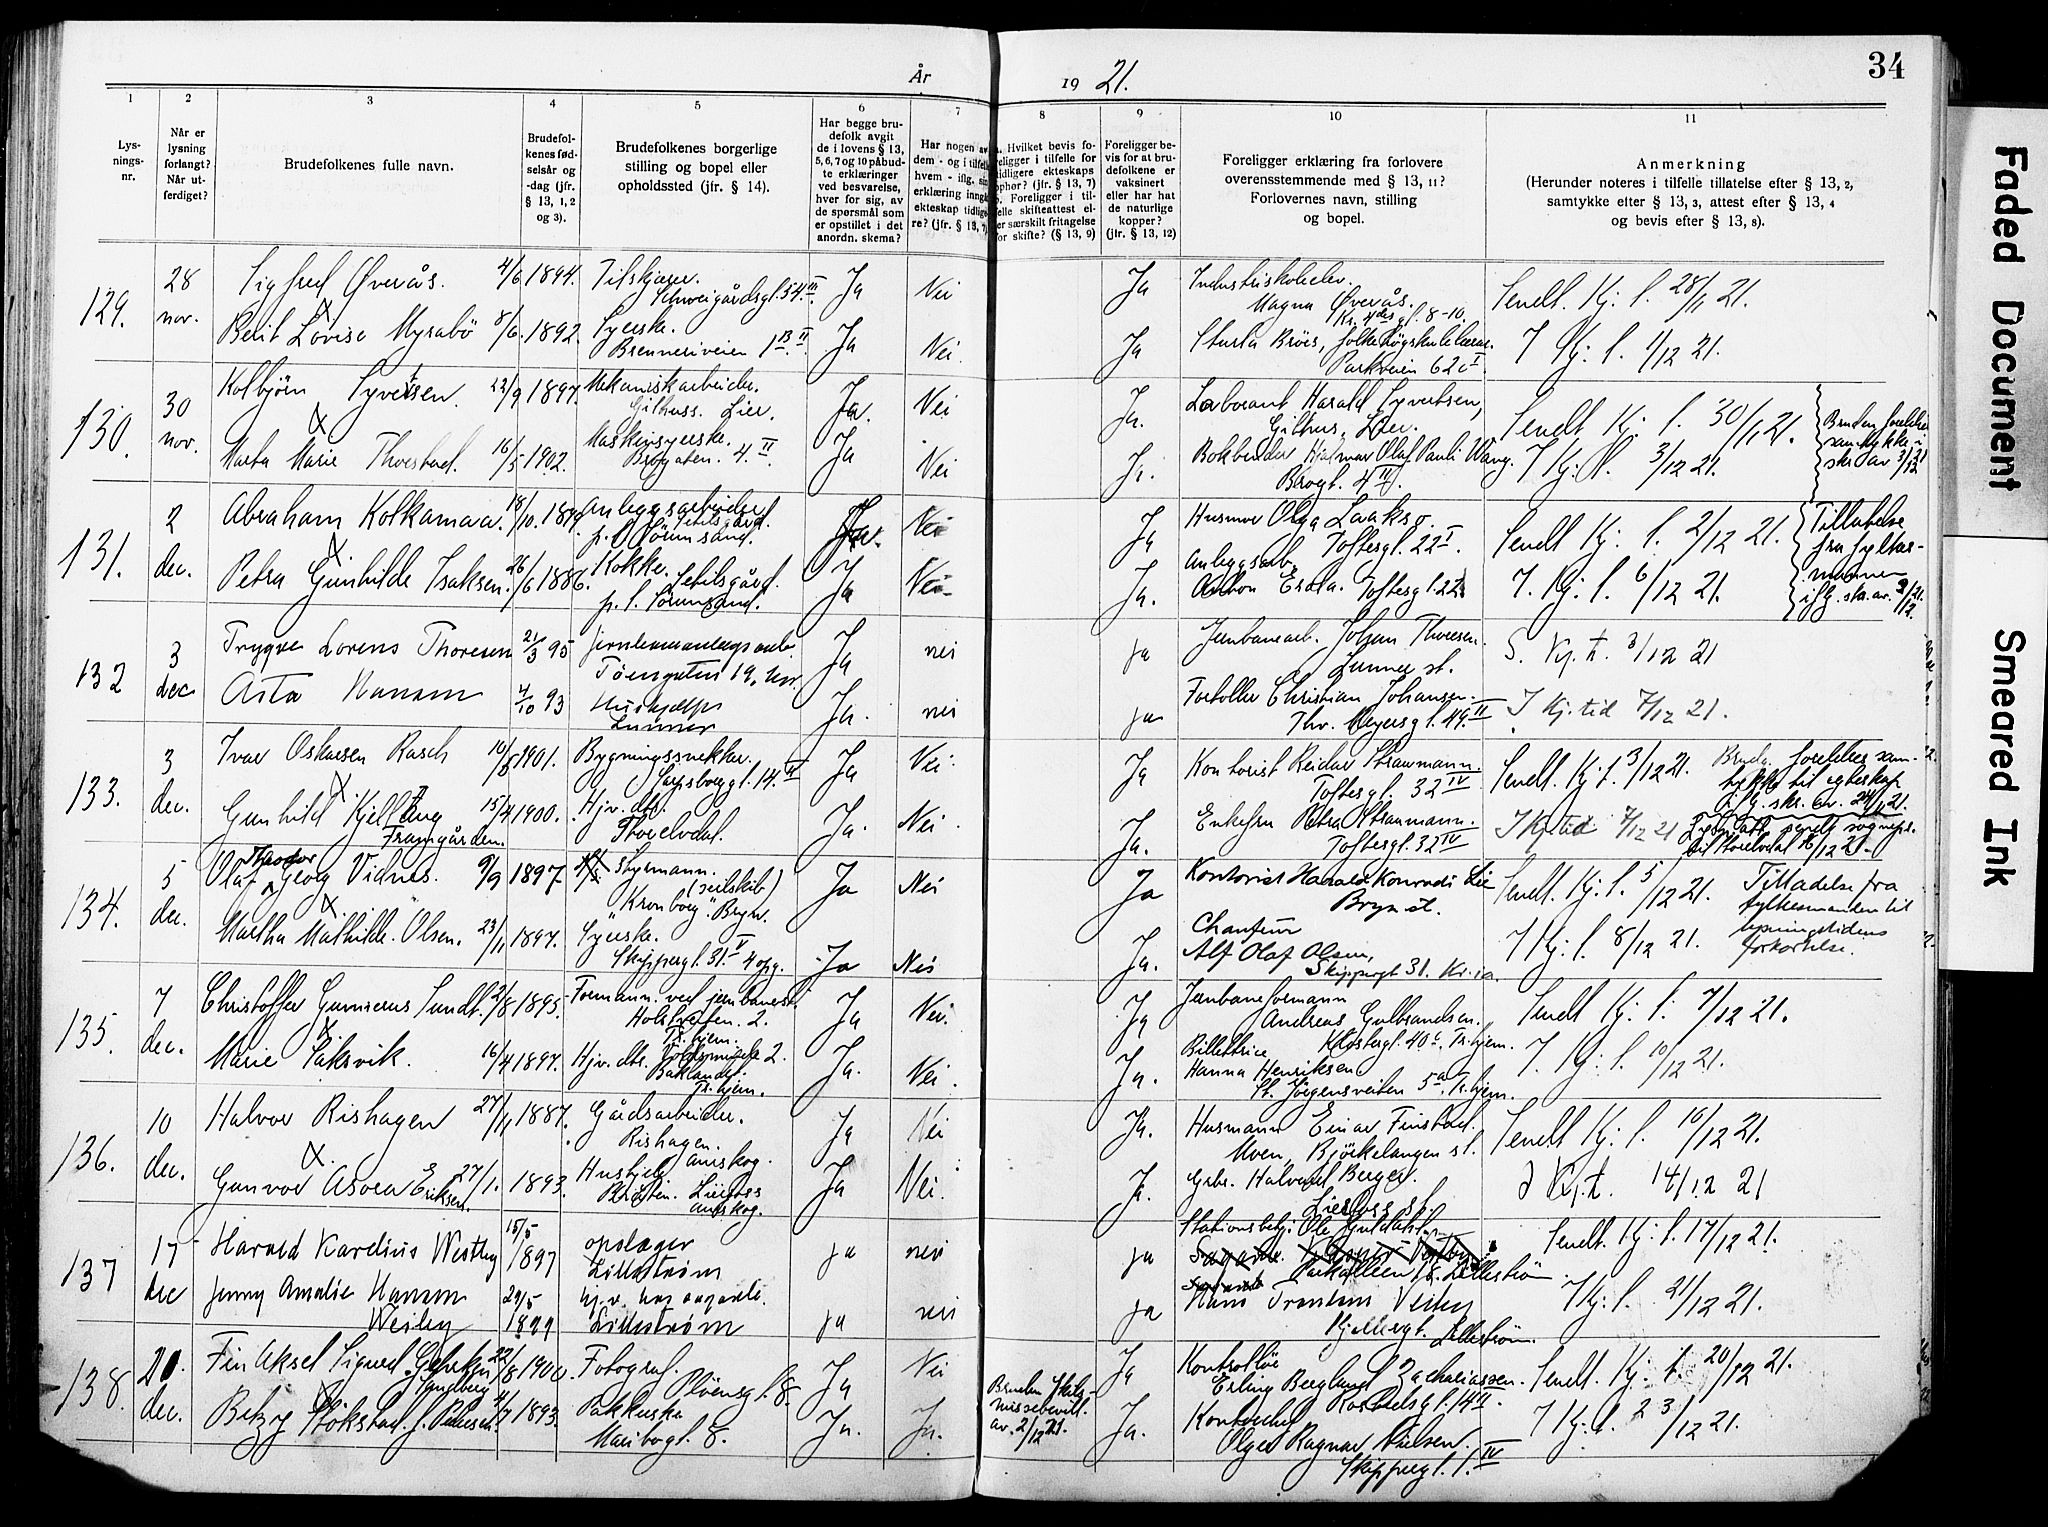 År 1921.
34
1 2 3 4 5 6 7 8 9 10 11
Lys-
nings-
nr.
Når er
lysning
forlangt?
Når ut-
ferdiget?
Brudefolkenes fulle navn.
Brudefol-
kenes fød-
selsår og
-dag (jfr.
§ 13, 1, 2
og 3).
Brudefolkenes borgerlige
stilling og bopel eller
opholdssted (jfr. § 14).
Har begge bru-
defolk avgit
de i lovens § 13,
5, 6, 7 og 10 påbud-
te erklæringer
ved besvarelse,
hver for sig, av
de spørsmål som
er opstillet i det
anordn. skema?
Har nogen av
dem - og i tilfelle
hvem - iflg. sin
erklæring inngå
ekteskap tidlige-
re? (jfr. § 13, 7)
Hvilket bevis fo-
religger i tilfelle for
tidligere ekteskaps
ophør? (jfr. § 13, 7)
Foreligger i til-
felle skifteattest el-
ler særskilt fritagelse
for skifte? (§ 13, 9)
Foreligger be-
vis for at bru-
defolkene er
vaksinert
eller har hat
de naturlige
kopper?
(jfr. § 13, 12)
Foreligger erklæring fra forlovere
overensstemmende med § 13, 11?
Forlovernes navn, stilling
og bopel.
Anmerkning
(Herunder noteres i tilfelle tillatelse efter § 13, 2,
samtykke efter § 13, 3, attest efter § 13, 4
og bevis efter § 13, 8).
129.
28
nov.
Sigfred Øverås. 4/6 1894.
Schweigårdsgt. 54. III
Ja Nei Ja
Magna Øverås.
Sendt. Kj. t. 28/11 21.
Berit Lovise Myrabø 8/6. 1892.
Syerske.
Brenneriveien 1 B. II
Ja Nei. Ja
Sturla Brörs, folkehøgskulelærar.
Parkveien 62 c I
I Kj. t. 1/12 21.
130.
30
nov.
Kolbjörn Syvertsen. 22/9 1897.
Mekanisk arbeider.
Gilhus. Lier.
Ja. Nei Ja.
Laborant Harald Syvertsen,
Gilhus, Lier.
Sendt Kj. t. 30/11 21.
Marta Marie Thorstad. 16/5 1902.
Maskinsyerske.
Brogaten. 4. II
Ja Nei Ja.
Bokbinder Hjalmar Olaf Pauli Wang.
Brogt. 4 II.
I Kj. t. 3/12 21.
Bruden foreldres
samtykke i
skr. av 3/12 21
131.
2
dec.
Abraham Kolkamaa. 18/10. 1879.
Anleggsarbeider
p. t. Sörumsand.
Ja. Nei Ja
Husmor Olga Laakso.
Toftesgt. 22 I.
Sendt Kj. t. 2/12 21.
Petra Gunhilde Isaksen. 26/6 1886.
Kokke.
p. t. Sörumsand.
Ja Nei Ja.
Anleggsarb.
Anton Erola. Toftesgt. 22
I. Kj. t. 6/12 21.
Tillatelse
fra fylkes-
mannen
iflg. skr. av. 2/12. 21.
132
3
dec
Trygve Lorens Thoresen 21/3 95
Jernbaneanlegsarb.
Töiengaten 19,
Ja nei ja
Jernbanearb. Johan Thoresen.
Lunner st.
S. Kj. t. 3/12 21
Asta Hansen 7/10 93
Hushjelp
Lunner
Ja. nei ja
Fortoller Christian Johansen.
Thv. Meyersgt. 49. II
I Kj. tid 7/12 21.
133.
3
dec.
Ivar Oskarsen Rasch 10/5 1901.
Bygningssnekker.
Sarpsborggt. 14. II
Ja Nei. Ja
Kontorist Reidar Straumann.
Toftesgt. 32 IV
Sendt. Kj. t. 3/12 21.
Gunhild Kjellaug
Framgården. 15/4 1900.
Hjv. dtr.
Ja. Nei. Ja.
Enkefru Petra Straumann.
Toftesgt. 32 IV
I Kj. tid 7/12 21
Bruda. foreldres sam-
tykke til egteskap
iflg. skr. av. 24/11 21.
134.
5
dec.
Olaf Theodor Georg Vidnes. 9/9 1897
Styrmann.
(seilskib)
"Kronborg". Bryn.
Ja Nei Ja
Kontorist Harald Konradi Lie
Bryn st.
Sendt. Kj. t. 5/12 21.
Martha Mathilde. Olsen. 23/11 1897.
Syerske.
Skippergt. 31. V 4 opg.
Ja Nei Ja.
Chauffeur
Alf Olaf Olsen,
Skippergt 31. Kr.ia.
I Kj. t. 8/12 21.
Tilladelse fra
fylkesmanden til
lysningstidens
forkortelse.
135.
7
dec.
Christoffer Gunnerus Sundt. 2/8 1895.
Formann. ved jernbanest.
Holstveiten. 2.
Tr.hjem.
Ja Nei. Ja
Jernbaneformann
Andreas Gulbrandsen.
Klostergt. 40 c. Tr.hjem.
Sendt Kj. t. 7/12 21.
Marie Saksvik. 16/4 1897.
Hjv. dtr.
Baklandet.
Tr.hjem.
Ja. Nei. Ja.
Billettrice
Hanna Henriksen
St. Jörgensveiten 5 a. Tr.hjem.
I. Kj. t. 10/12 21.
136.
10
dec.
Halvor Rishagen 27/11 1887.
Gårdsarbeider.
Rishagen.
Aurskog.
Ja Nei Ja.
Husmann Einar Finstad.
Moen, Bjørkelangen st.
Sendt Kj. t. 10/12 21.
Gunvor Asora Eriksen. 27/1. 1893.
Hushjelp
Lierfoss
Aurskog.
Ja Nei. Ja.
Grbr. Halvard Berger.
Lierfoss st.
I Kj. t. 14/12 21
137
17
dec
Harald Kardius Westby 15/5 1897
opslager
Lillestrøm
ja nei ja
Parkalleen 18. Lillestrøm
Sendt. Kj. t. 17/12 21.
Jenny Amalie Hansen
Wesley 29/5 1899
Lillestrøm
ja nei ja
Lillestrøm.
I Kj. t. 21/12 21.
138.
20.
dec.
Fin Aksel Sigurd 22/8 1900.
Fotograf.
Pløensgt. 8.
Ja Nei Ja
Kontrollør
Erling Berglund Zachariassen.
Sendt. Kj. t. 20/12 21.
Betzy Stokstad f. Pettersen. 4/7 1893.
Pakkerske
Maribogt. 8.
Ja. Ja.
Bruden skils-
missebevill.
av. 2/12 21.
Ja.
Olger Ragnar Nielsen.
Skippergt. 1. IV
I Kj. t. 23/12 21.
Faded Document
Smeared Ink